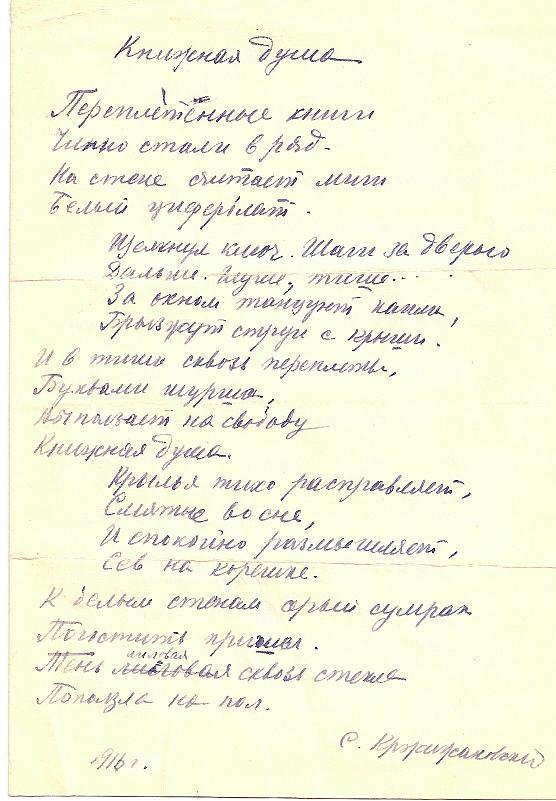 Книжная душа
Переплетённые книги
Чинно стали в ряд.
На стене считает миги
Белый циферблат.
Щелкнул ключ. Шаги за дверью
Дальше. Глуше, тише...
За окном танцуют капли,
Брызжут струи с крыши!
И в тиши сквозь переплёты,
Буквами шурша,
Выползает на свободу
Книжная душа.
Крылья тихо расправляет,
Смятые во сне,
И спокойно размышляет,
Сев на корешке.
К белым стенам серый сумрак
Погостить пришел.
лиловая
Тень сквозь стекла
Поползла на пол.
С. Кржижановский
1916 г.